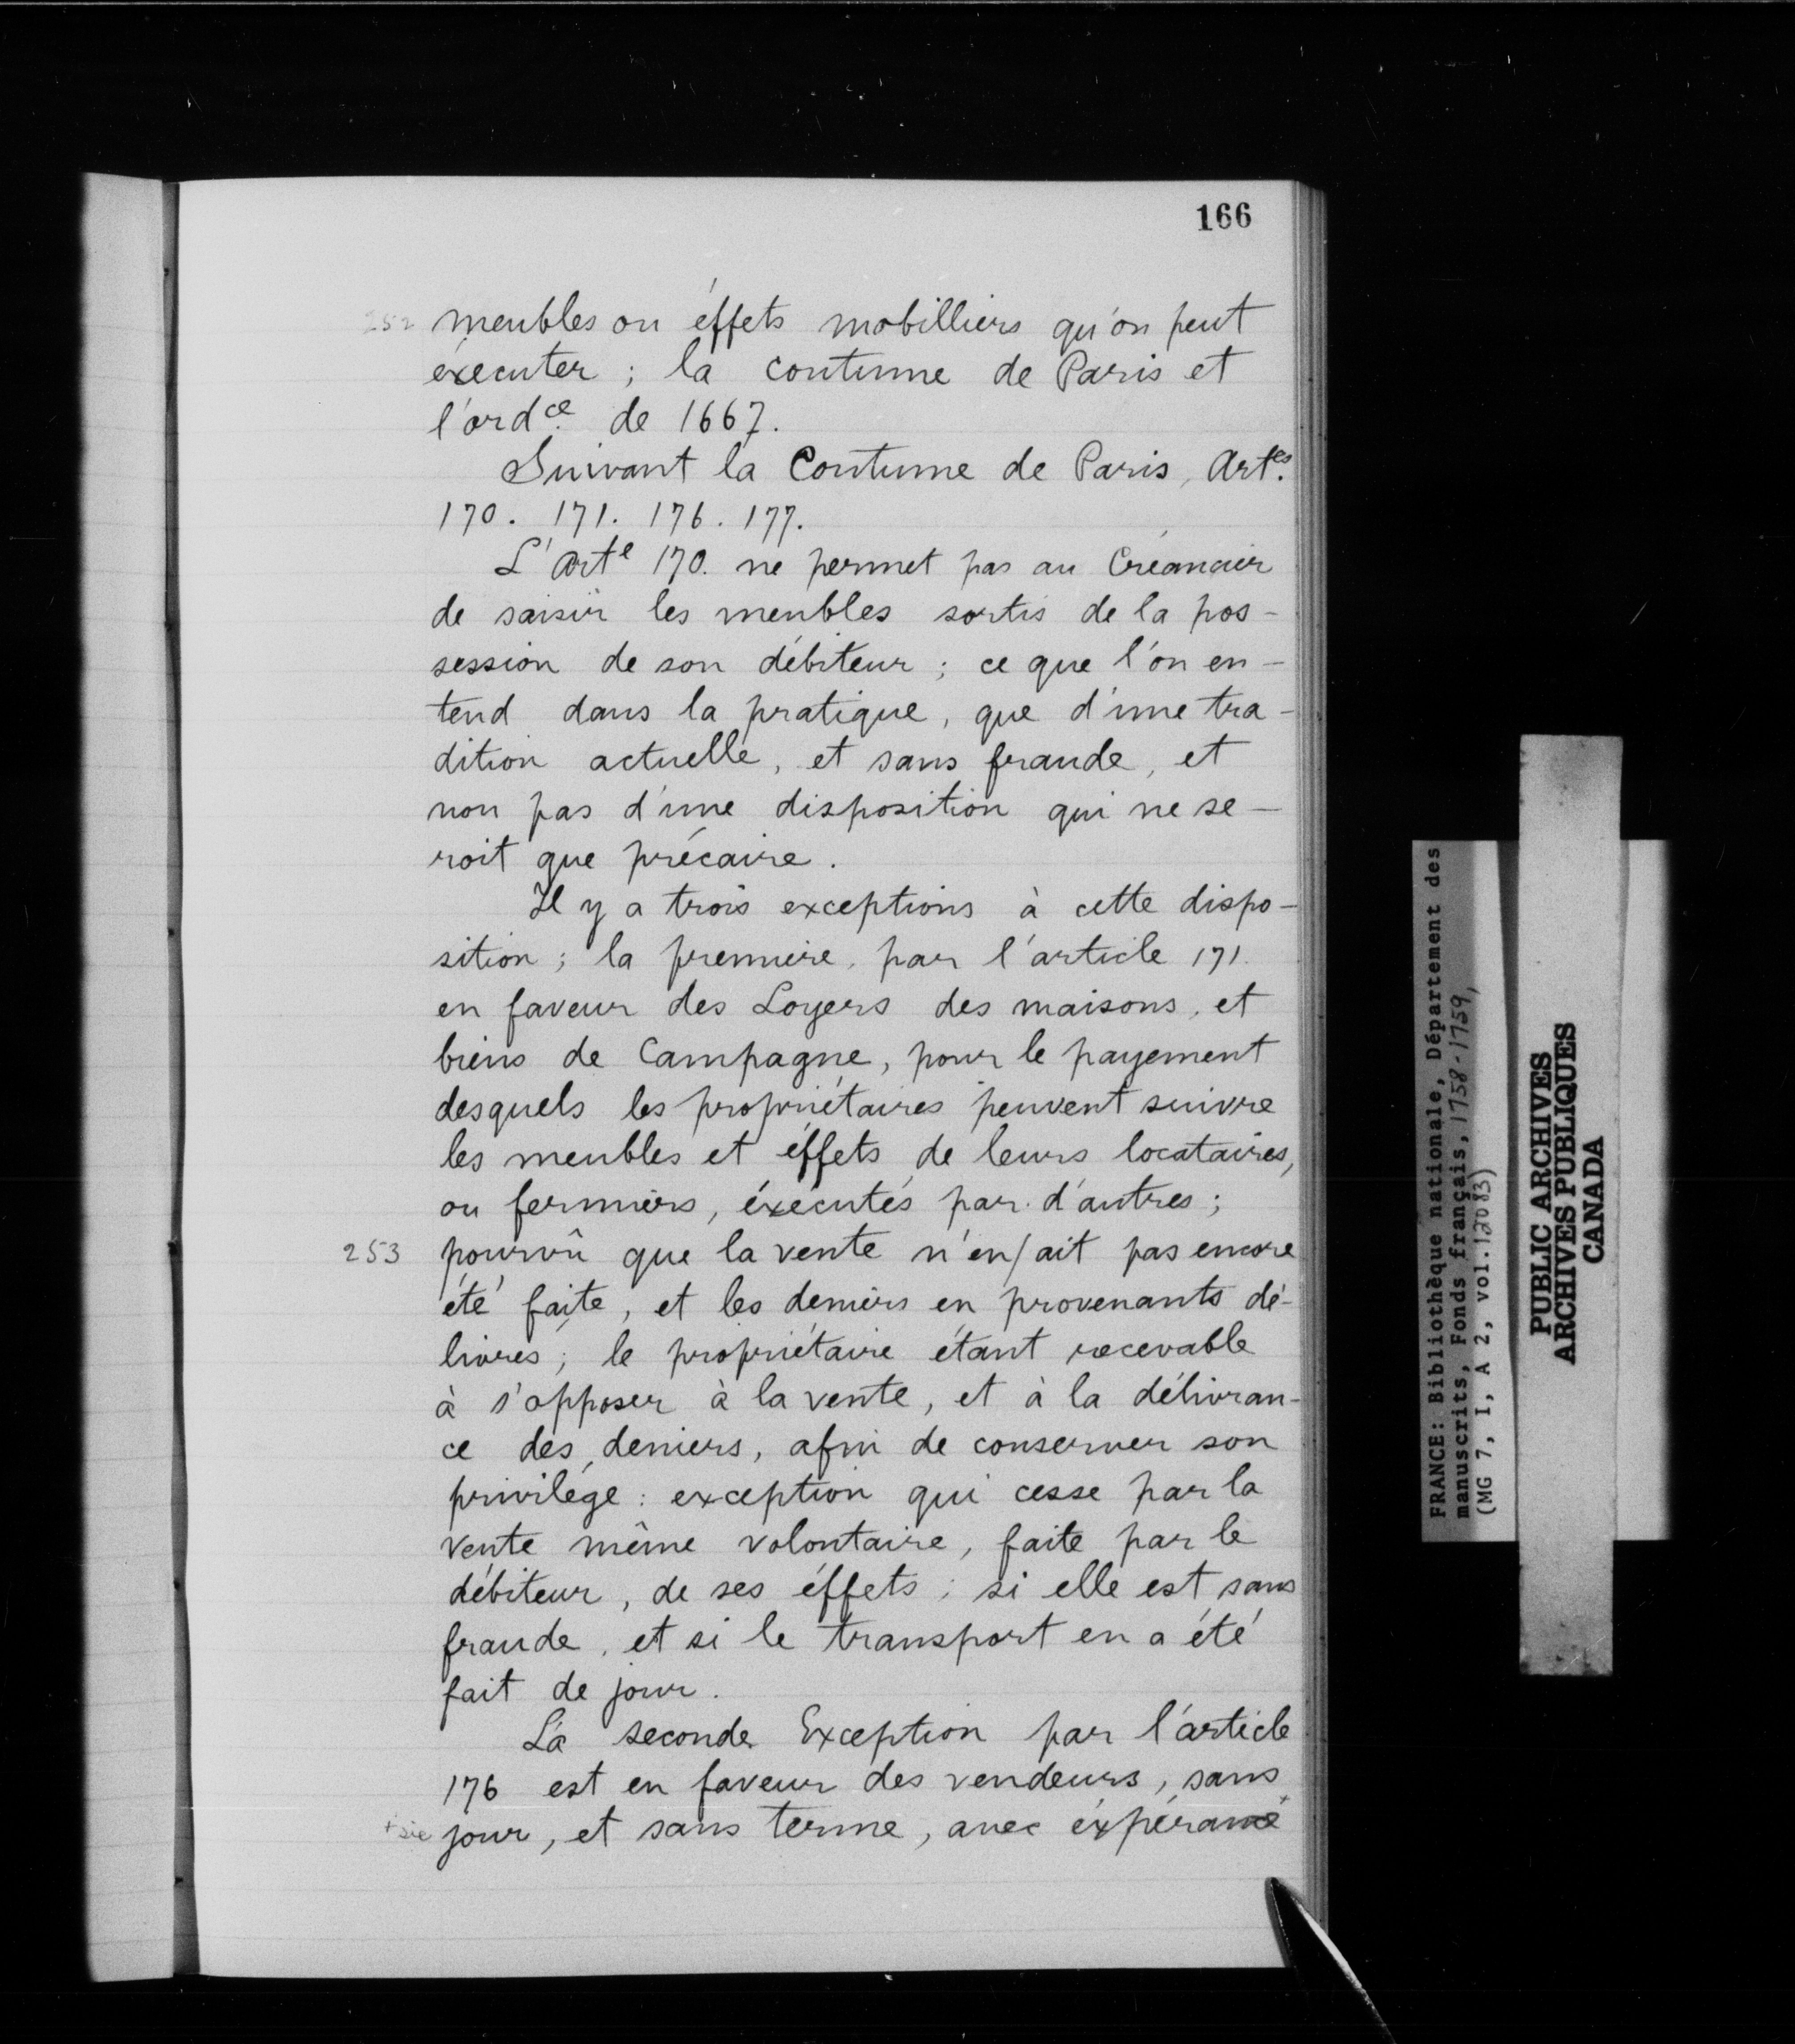 166
252 meubles ou éffets mobilliers qu'on peut
éxecuter ; la coutume de Paris et
l'ordce de 1667.
Suivant la Coutume de Paris, Artes.
170. 171. 176. 177.
L'Arte 170. ne permet pas au Créancier
de saisir les meubles sortis de la pos-
session de son débiteur ; ce que l'on en-
tend dans la pratique, que d'une tra-
dition actuelle, et sans fraude, et
non pas d'une disposition qui ne se-
roit que précaire.
Il y a trois exceptions à cette dispo-
sition ; la premiere, par l'article 171.
en faveur des Loyers des maisons, et
biens de Campagne, pour le payement
desquels les propriétaires peuvent suivre
les meubles et éffets de leurs locataires,
ou fermiers, éxécutés par d'autres ;
253 pourvû que la vente n'en/ait pas encore
été faite, et les deniers en provenants dé-
livrés ; le propriétaire étant recevable
à s'opposer à la vente, et à la délivran-
ce des deniers, afin de conserver son
privilége : exception qui cesse par la
vente même volontaire, faite par le
débiteur, de ses éffets ; si elle est sans
fraude, et si le transport en a été
fait de jour.
La seconde Exception par l'article
176 est en faveur des vendeurs, sans
+ sic jour, et sans terme, avec éxpérance+
FRANCE: Bibliothèque nationale, Département des
manuscrits, Fonds français, 1758-1759,
(MG 7, I, A 2, vol. 12083)
PUBLIC ARCHIVES
ARCHIVES PUBLIQUES
CANADA